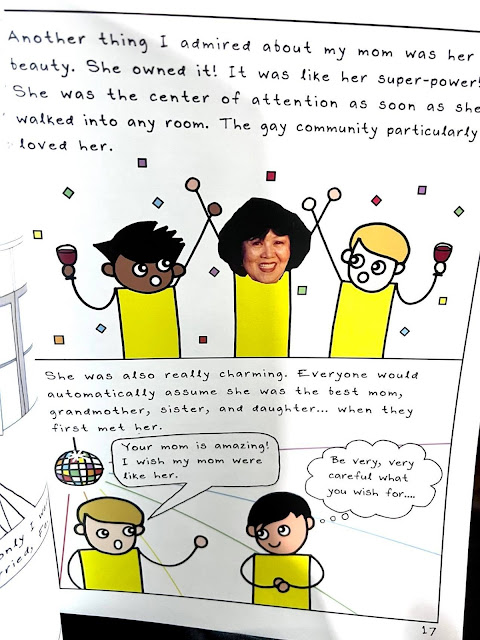 Another thing I admired about my mom was her
beauty. She owned it! It was like her super-power!
She was the center of attention as soon as she
walked into any room. The gay community particularly
loved her.
She was also really charming. Everyone would
automatically assume she was the best mom,
grandmother, sister, and daughter... when they
first met her.
Your mom is amazing!
I wish my mom were
like her.
Be very, very
careful what
you wish for....
only I w
17